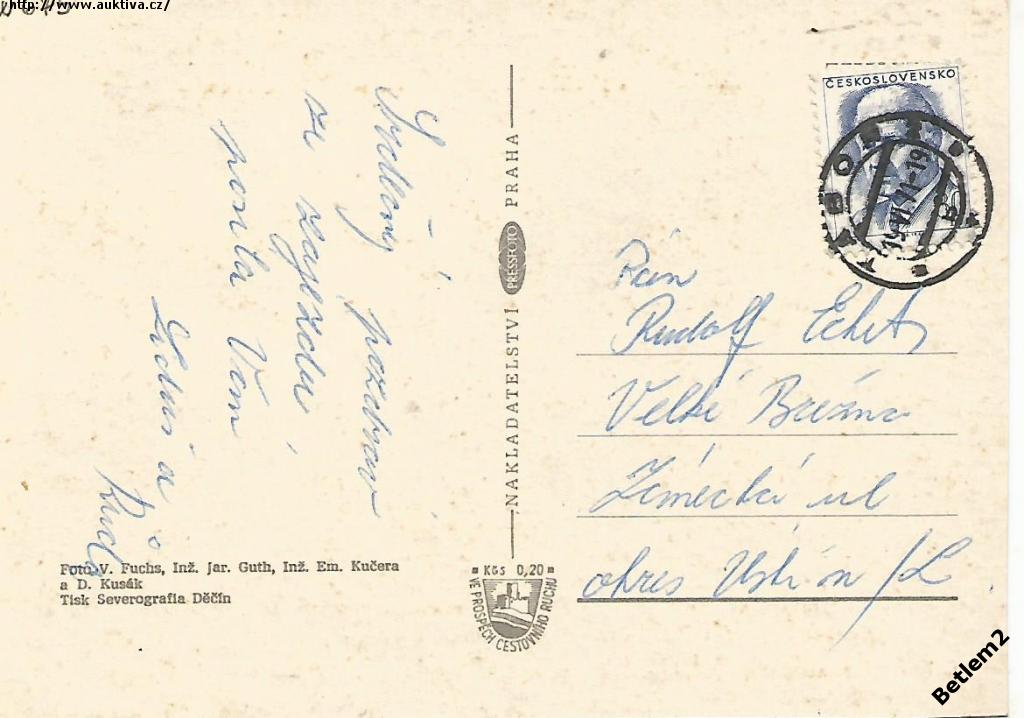 http://www.auktiva.cz/
Srdečný pozdrav
ze zájezdu
posílá Vám
a
Ruda
Foto V. Fuchs, Inž. Jar. Guth, Inž. Em. Kučera
a D. Kusák
Tisk Severografia Děčín
NAKLADATELSTVÍ PRESSFOTO PRAHA
Kčs 0,20
VE PROSPĚCH CESTOVNÍHO RUCHU
ČESKOSLOVENSKO
TÁBOR
Pán
Rudolf
Velké Březno
Zámecká ul
okres Ústí n/L
Betlem2